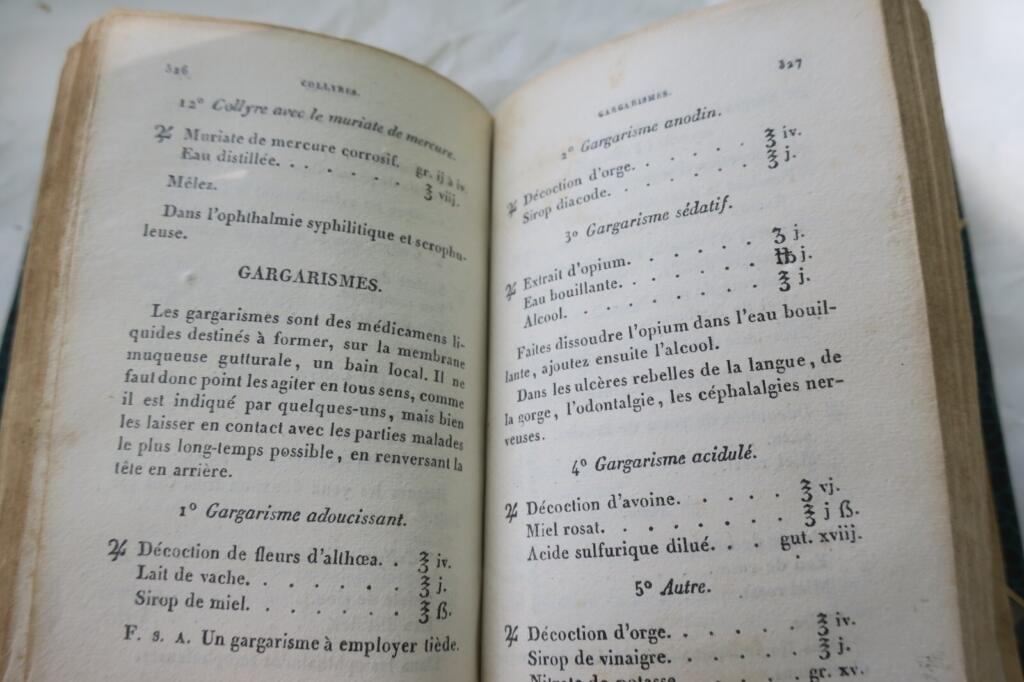 326
COLLYRES.
12° Collyre avec le muriate de mercure.
♃ Muriate de mercure corrosif. gr. ij à iv.
Eau distillée. . . . . . . ℥ viij.
Mêlez.
Dans l'ophthalmie syphilitique et scrophu-
leuse.
GARGARISMES.
Les gargarismes sont des médicamens li-
quides destinés à former, sur la membrane
muqueuse gutturale, un bain local. Il ne
faut donc point les agiter en tous sens, comme
il est indiqué par quelques-uns, mais bien
les laisser en contact avec les parties malades
le plus long-temps possible, en renversant la
tête en arrière.
1° Gargarisme adoucissant.
♃ Décoction de fleurs d'althœa. . ℥ iv.
Lait de vache. . . . . . . ℥ j.
Sirop de miel. . . . . . . ℥ ß.
F. s. A. Un gargarisme à employer tiède.
327
GARGARISMES.
2° Gargarisme anodin.
♃ Décoction d'orge. . . . . . ℥ iv.
Sirop diacode. . . . . . . ℥ j.
3° Gargarisme sédatif.
♃ Extrait d'opium. . . . . . ʒ j.
Eau bouillante. . . . . . . ℔ j.
Alcool. . . . . . . . ℥ j.
Faites dissoudre l'opium dans l'eau bouil-
lante, ajoutez ensuite l'alcool.
Dans les ulcères rebelles de la langue, de
la gorge, l'odontalgie, les céphalalgies ner-
veuses.
4° Gargarisme acidulé.
♃ Décoction d'avoine. . . . . ℥ vj.
Miel rosat. . . . . . . ℥ j ß.
Acide sulfurique dilué. . . gut. xviij.
5° Autre.
♃ Décoction d'orge. . . . . . ℥ iv.
Sirop de vinaigre. . . . . . ℥ j.
Nitrate de potasse gr. xv.